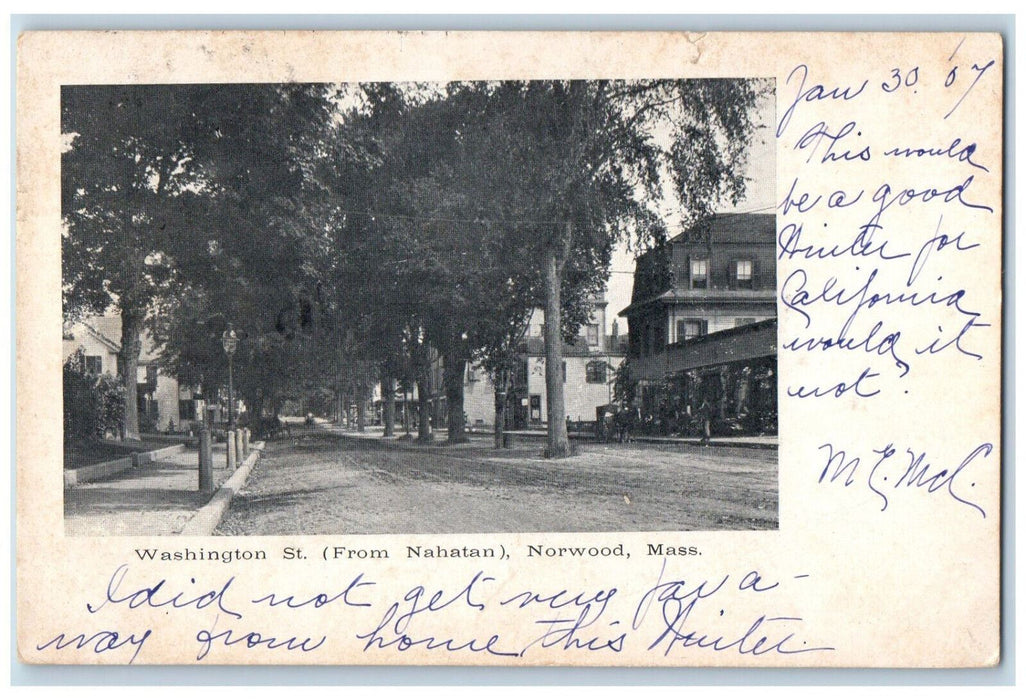 Jan 30. '07
This would
be a good
Winter for
California
would it
not?
M. E. McC.
Washington St. (From Nahatan), Norwood, Mass.
I did not get very far a-
way from home this Winter.